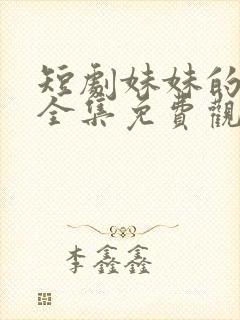 短劇妹妹的
全集免費觀
李鑫鑫